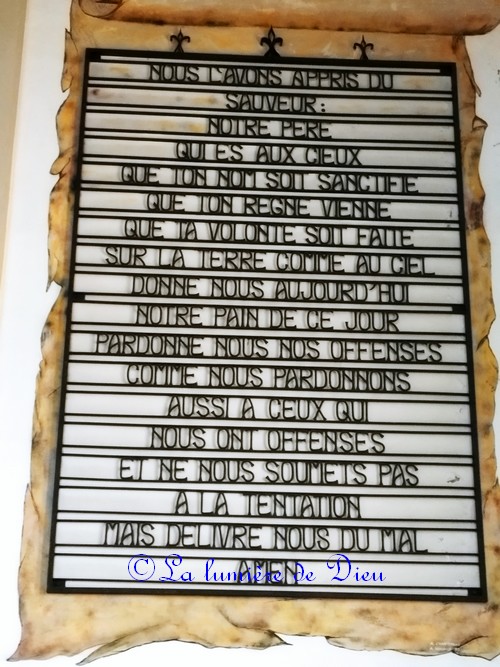 NOUS L'AVONS APPRIS DU
SAUVEUR:
NOTRE PERE
QUI ES AUX CIEUX
QUE TON NOM SOIT SANCTIFIE
QUE TON REGNE VIENNE
QUE TA VOLONTE SOIT FAITE
SUR LA TERRE COMME AU CIEL
DONNE NOUS AUJOURD'HUI
NOTRE PAIN DE CE JOUR
PARDONNE NOUS NOS OFFENSES
COMME NOUS PARDONNONS
AUSSI A CEUX QUI
NOUS ONT OFFENSES
ET NE NOUS SOUMETS PAS
A LA TENTATION
MAIS DELIVRE NOUS DU MAL
AMEN
© La lumière de Dieu